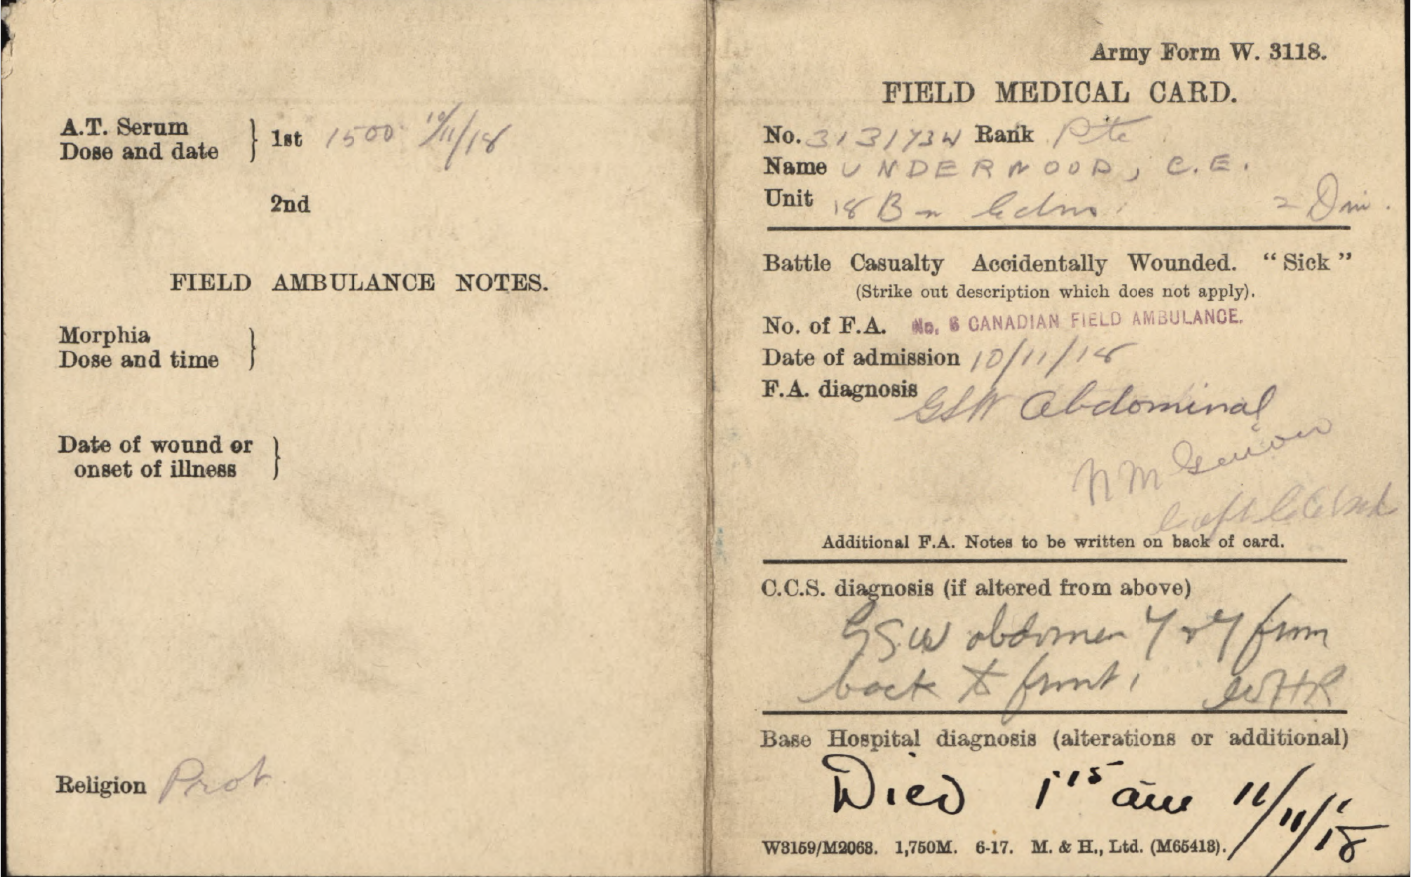 A.T. Serum
Dose and date } 1st 1500 10/11/18
2nd
FIELD AMBULANCE NOTES.
Morphia
Dose and time }
Date of wound or
onset of illness }
Religion Prot
Army Form W. 3118.
FIELD MEDICAL CARD.
No. 3131734 Rank Pte
Name UNDERWOOD, C.E.
Unit 18 Bn Cdns. 2 Div.
Battle Casualty Accidentally Wounded. "Sick"
(Strike out description which does not apply).
No. of F.A. No. 6 CANADIAN FIELD AMBULANCE.
Date of admission 10/11/18
F.A. diagnosis GSW Abdominal
N M
Capt
Additional F.A. Notes to be written on back of card.
C.C.S. diagnosis (if altered from above)
GSW abdomen T & T from
back to front. WHR
Base Hospital diagnosis (alterations or additional)
Died 1 15 am 11/11/18
W3159/M2063. 1,750M. 6-17. M. & H., Ltd. (M65413).